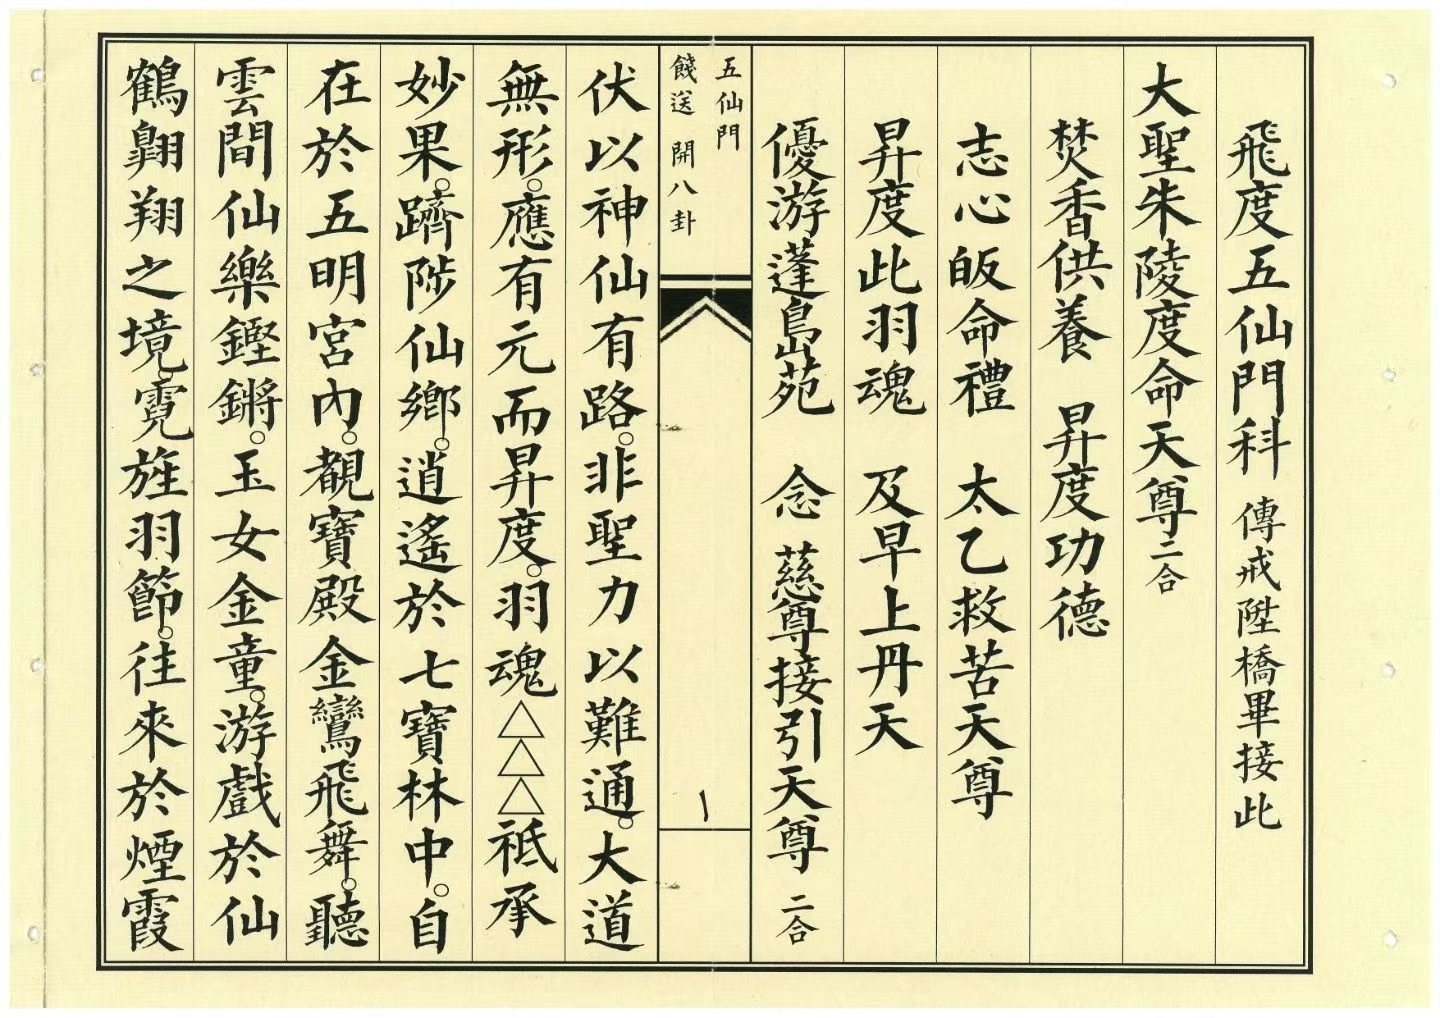 飛度五仙門科 傳戒陞橋畢接此
大聖朱陵度命天尊二合
焚香供養 昇度功德
志心皈命禮 太乙救苦天尊
昇度此羽魂 及早上丹天
優游蓬島苑 念 慈尊接引天尊 二合
五仙門
餞送 開八卦
一
伏以神仙有路。非聖力以難通。大道
無形。應有元而昇度。羽魂△△△祗承
妙果。躋陟仙鄉。逍遙於七寶林中。自
在於五明宮內。覩寶殿金鸞飛舞。聽
雲間仙樂鏗鏘。玉女金童。游戲於仙
鶴翺翔之境。霓旌羽節。往來於煙霞